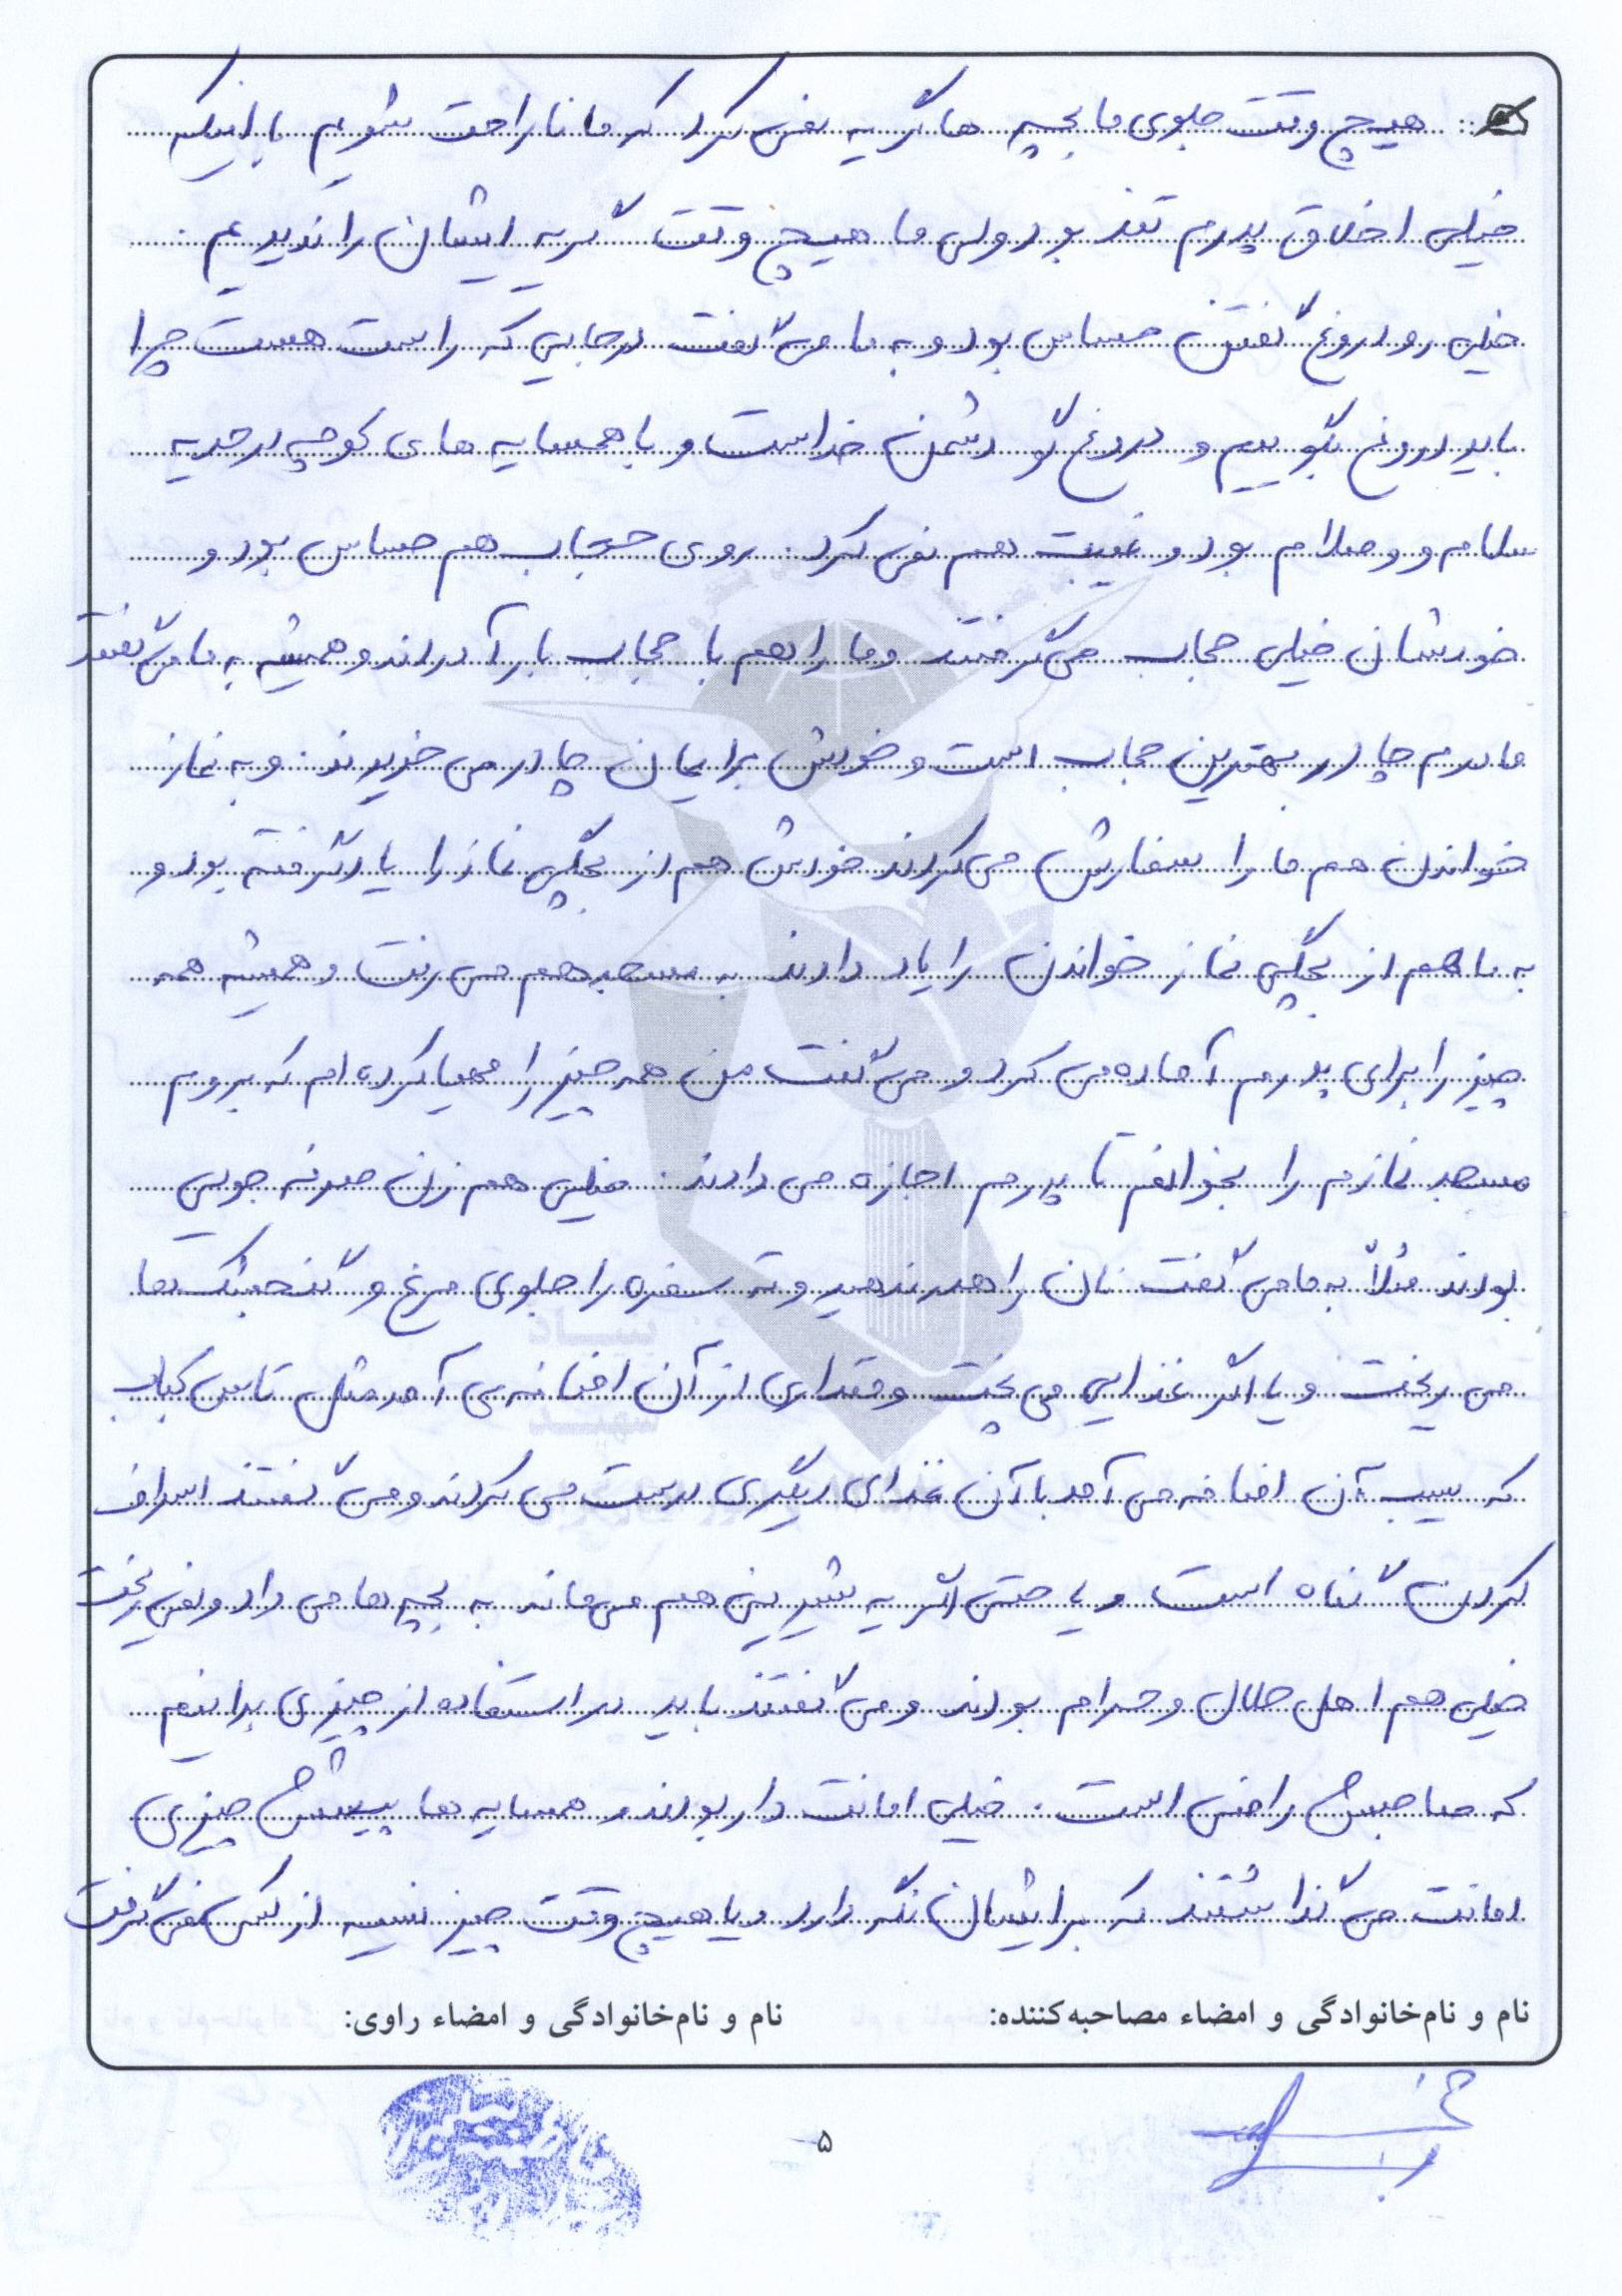 هیچ وقت جلوی ما بچه ها گریه نمی کرد که ما ناراحت شویم با اینکه
خیلی اخلاق پدرم تند بود ولی ما هیچ وقت گریه ایشان را ندیدیم.
خیلی رو دروغ گفتن حساس بود و به ما می گفت در جایی که راست هست چرا
باید دروغ بگوییم و دروغ گو دشمن خداست و با همسایه های کوچه در حد یه
سلام و و سلام بود و غیبت هم نمی کرد. روی حجاب هم حساس بود و
خودشان خیلی حجاب می گرفتند و ما را هم با حجاب بار آوردند و همیشه به ما می گفتند
مادرم چادر بهترین حجاب است و خودش برایمان چادر می خریدند. و به نماز
خواندن هم ما را سفارش می کردند خودش هم از بچگی نماز را یاد گرفته بود و
به ما هم از بچگی نماز خواندن را یاد دادند به مسجد هم می رفت و همیشه همه
چیز را برای پدرم آماده می کرد و می گفت من همه چیز را مهیا کرده ام که بروم
مسجد نمازم را بخوانم تا پدرم اجازه می دادند. خیلی هم زن صرفه جویی
بودند مثلاً به ما می گفت نان را هدر ندهید و ته سفره را جلوی مرغ و گنجشک ها
می ریخت و یا اگر غذایی می پخت و مقداری از آن اضافه می آمد مثل تاس کباب
که سیب آن اضافه می آمد با آن غذای دیگری درست می کردند و می گفتند اسراف
کردن گناه است و یا حتی اگر یه شیرینی هم می ماند به بچه ها می داد و نمی ریخت
خیلی هم اهل حلال و حرام بودند و می گفتند باید در استفاده از چیزی بدانیم
که صاحبش راضی است. خیلی امانت دار بودند همسایه ها پیشش چیزی
امانت می گذاشتند که برایشان نگه دارد و یا هیچ وقت چیز نسیه از کسی نمی گرفت
نام و نام‌خانوادگی و امضاء مصاحبه‌کننده: نام و نام‌خانوادگی و امضاء راوی:
۵